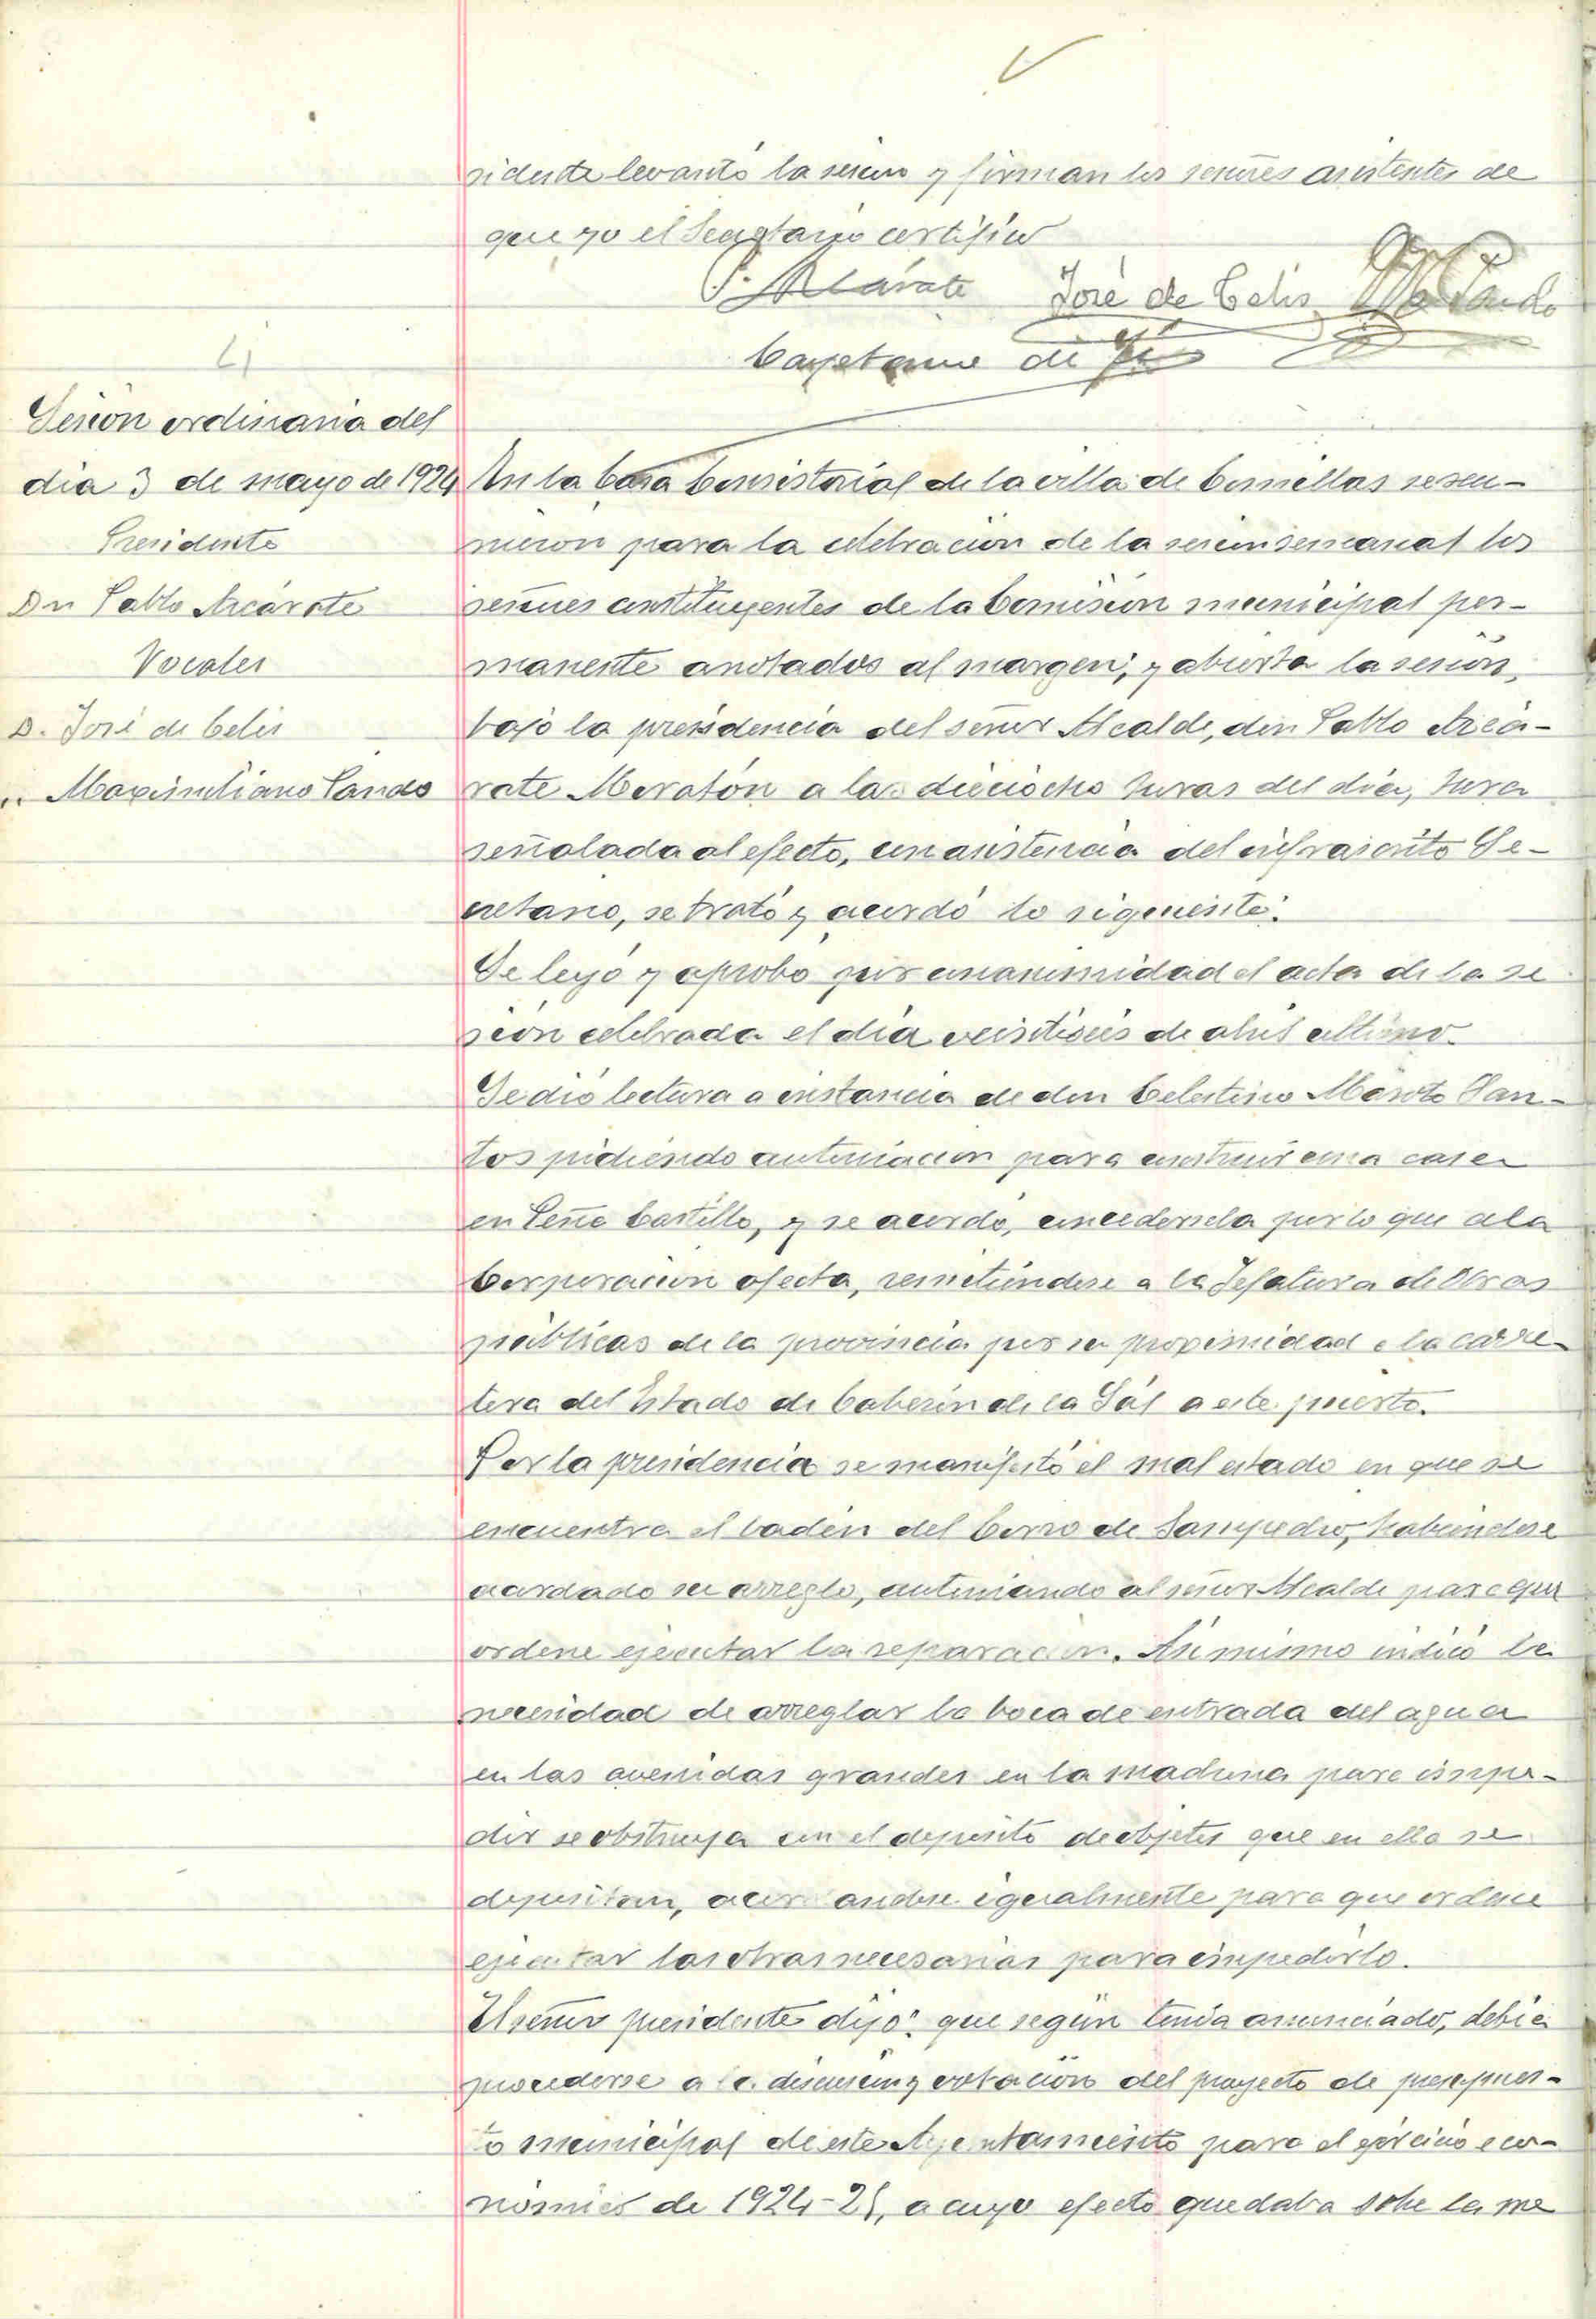 sidente levantó la sesion y firman los señores asistentes de
que yo el Secretario certifico
P. Azcárate José de Celis M Pando
Cayetano de
4
Sesión ordinaria del
dia 3 de mayo de 1924
Presidente
Dn Pablo Azcárate
Vocales
D. José de Celis
" Maximiliano Pando
En la Casa Consistorial de la villa de Comillas se reu-
nieron para la celebracion de la sesion semanal los
señores constituyentes de la Comisión municipal per-
manente anotados al margen, y abierta la sesión,
bajo la presidencia del señor Alcalde, don Pablo Azcá-
rate Meratón a las dieciocho horas del dia, hora
señalada al efecto, con asistencia del infrascrito Se-
cretario, se trató y acordó lo siguiente:
Se leyó y aprobó por unanimidad el acta de la se
sión celebrada el día veintiseis de abril último.
Se dió lectura a instancia de don Celestino Maroto San-
tos pidiendo autorizacion para construir una casa
en Peña Castillo, y se acordó, concedersela por lo que a la
Corporacion afecta, remitiendose a la Jefatura de Obras
públicas de la provincia por su proximidad a la carre-
tera del Estado de Cabezón de la Sál a este puerto.
Por la presidencia se manifestó el mal estado en que se
encuentra el badén del Corro de Sampedro, habiendose
acordado su arreglo, autorizando al señor Alcalde para que
ordene ejecutar la reparacion. Asi mismo indicó la
necesidad de arreglar la boca de entrada del agua
en las avenidas grandes en la para impe-
dir se obstruya con el deposito de objetos que en ella se
depositan, acordandose igualmente para que ordene
ejecutar las obras necesarias para impedirlo.
El señor presidente dijo: que según tenía anunciado, debía
procederse a la discusion y votación del proyecto de presupues-
to municipal de este Ayuntamiento para el ejercicio eco-
nómico de 1924-25, a cuyo efecto quedaba sobre la me